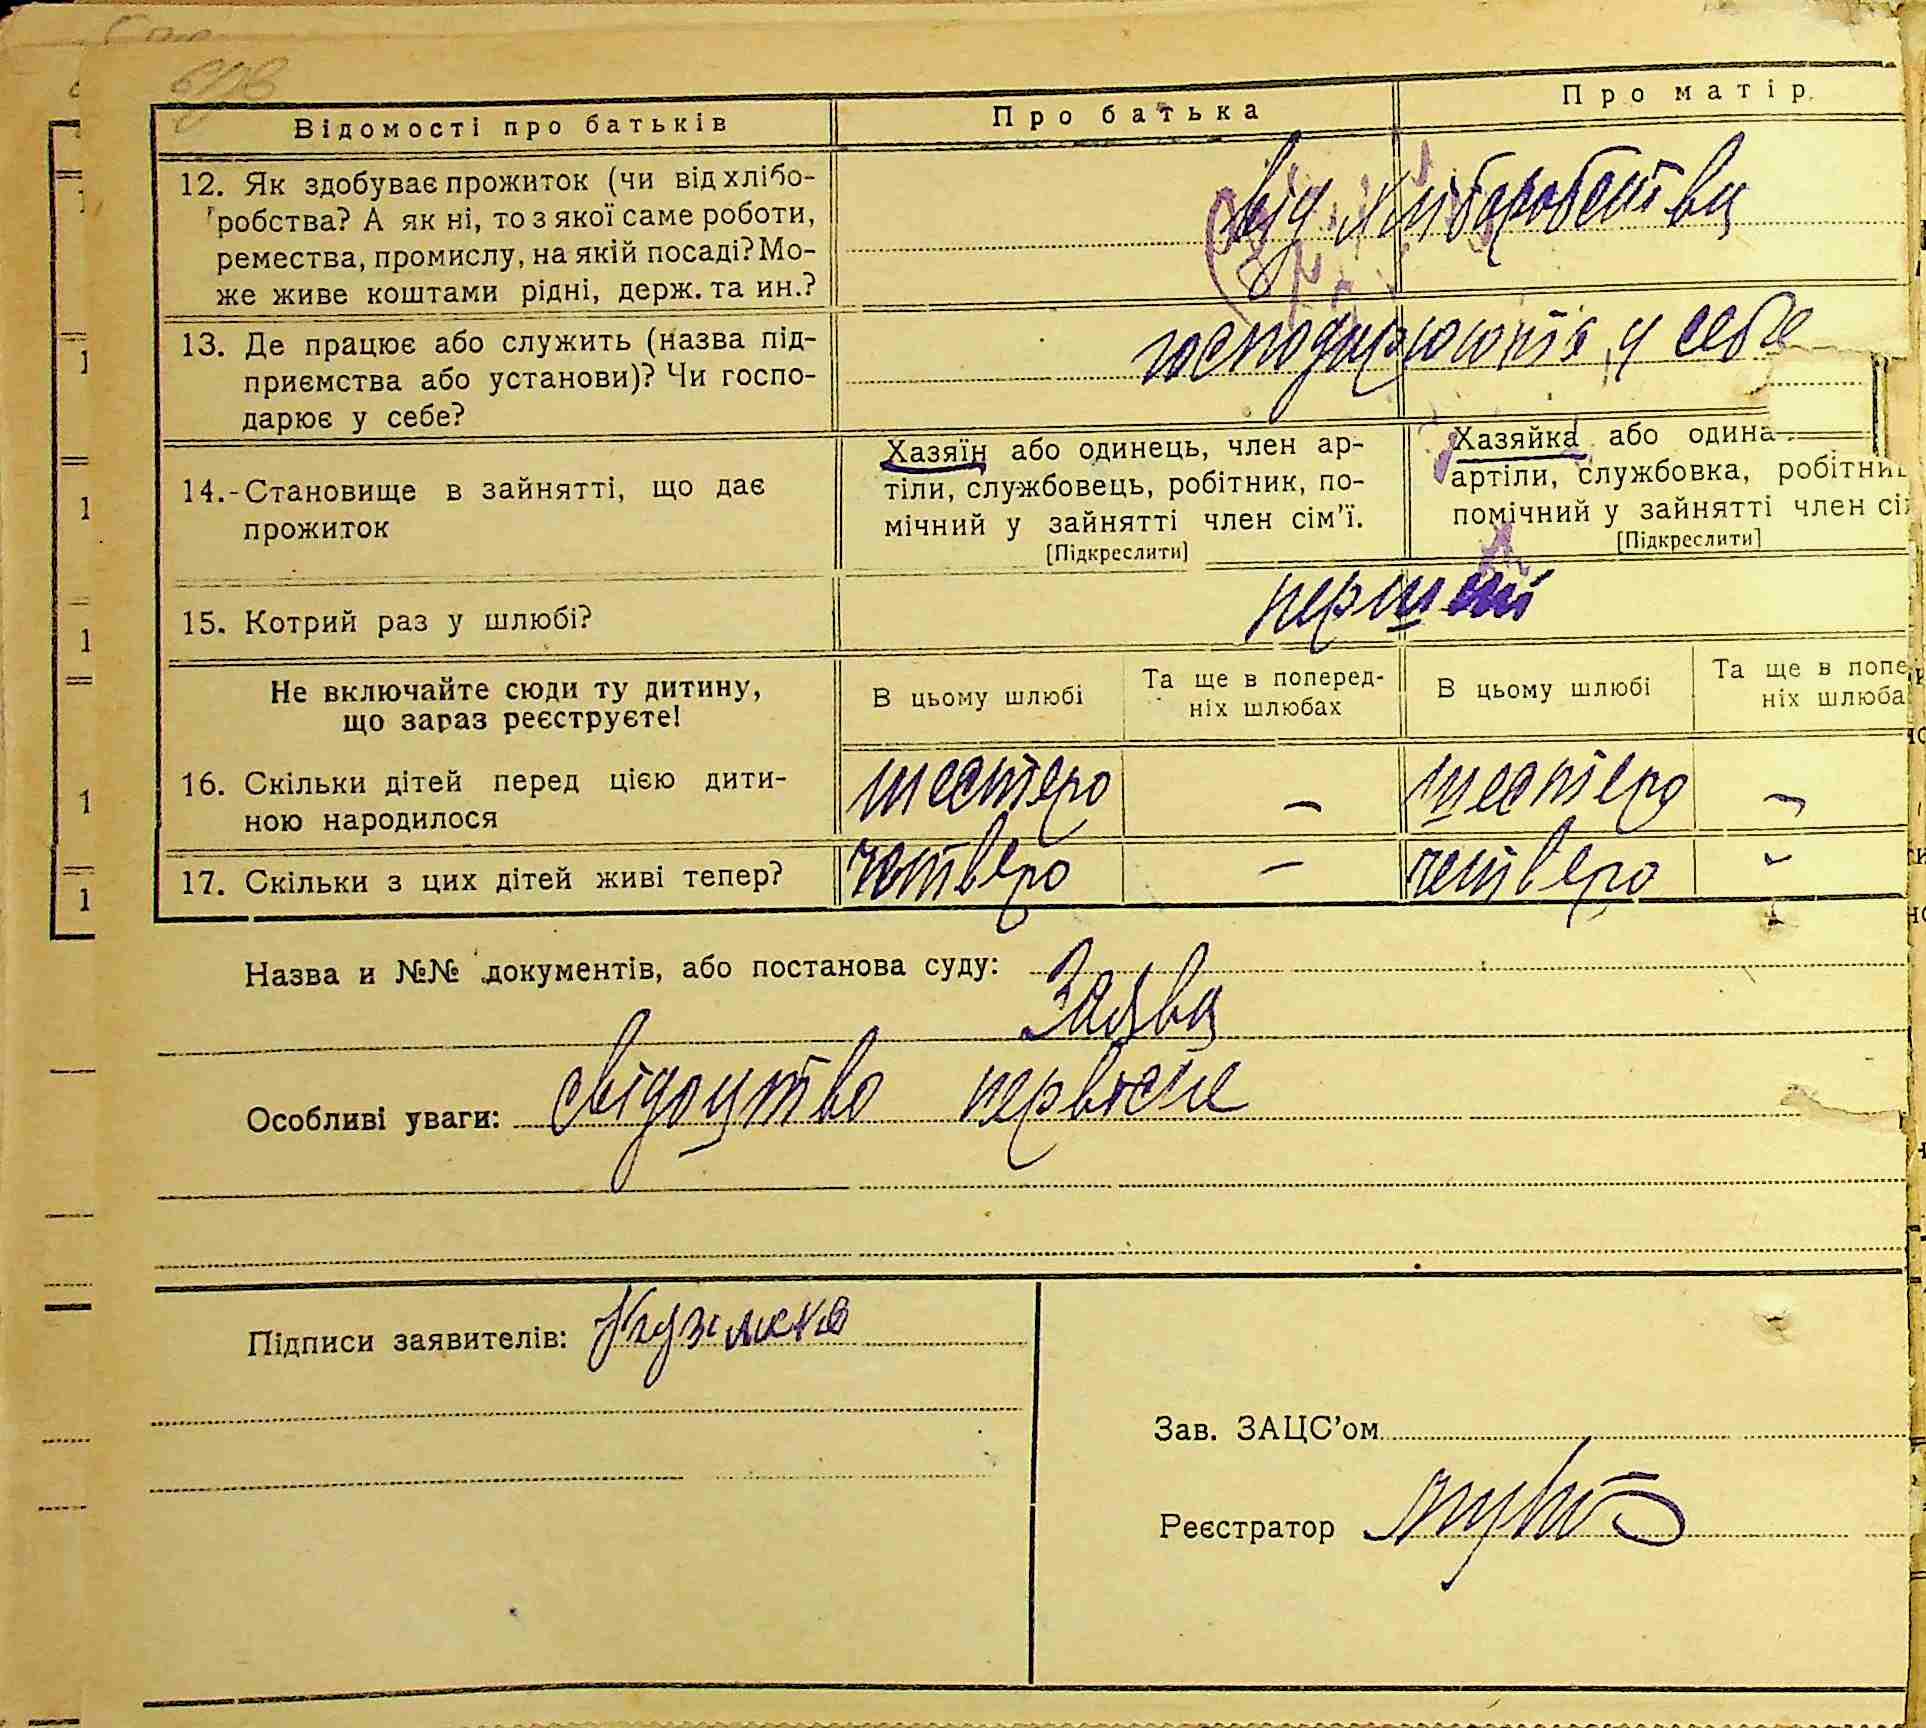 Відомості про батьків Про батька Про матір
12. Як здобуває прожиток (чи від хлібо-
робства? А як ні, то з якої саме роботи,
ремества, промислу, на якій посаді? Мо-
же живе коштами рідні, держ. та ин.?
від хліборобства
13. Де працює або служить (назва під-
приємства або установи)? Чи госпо-
дарює у себе?
господарюють у себе
14.-Становище в зайнятті, що дає
прожиток
Хазяїн або одинець, член ар-
тіли, службовець, робітник, по-
мічний у зайнятті член сім'ї.
[Підкреслити]
Хазяйка або одина
артіли, службовка, робітни
помічний у зайнятті член сі
[Підкреслити]
15. Котрий раз у шлюбі?
перший
Не включайте сюди ту дитину,
що зараз реєструєте!
В цьому шлюбі
Та ще в поперед-
ніх шлюбах
В цьому шлюбі
Та ще в попе
ніх шлюба
16. Скільки дітей перед цією дити-
ною народилося
шестеро – шестеро –
17. Скільки з цих дітей живі тепер?
четверо – четверо –
Назва и №№ документів, або постанова суду:
Заява
Особливі уваги: свідоцтво первісне
Підписи заявителів:
Зав. ЗАЦС'ом
Реєстратор